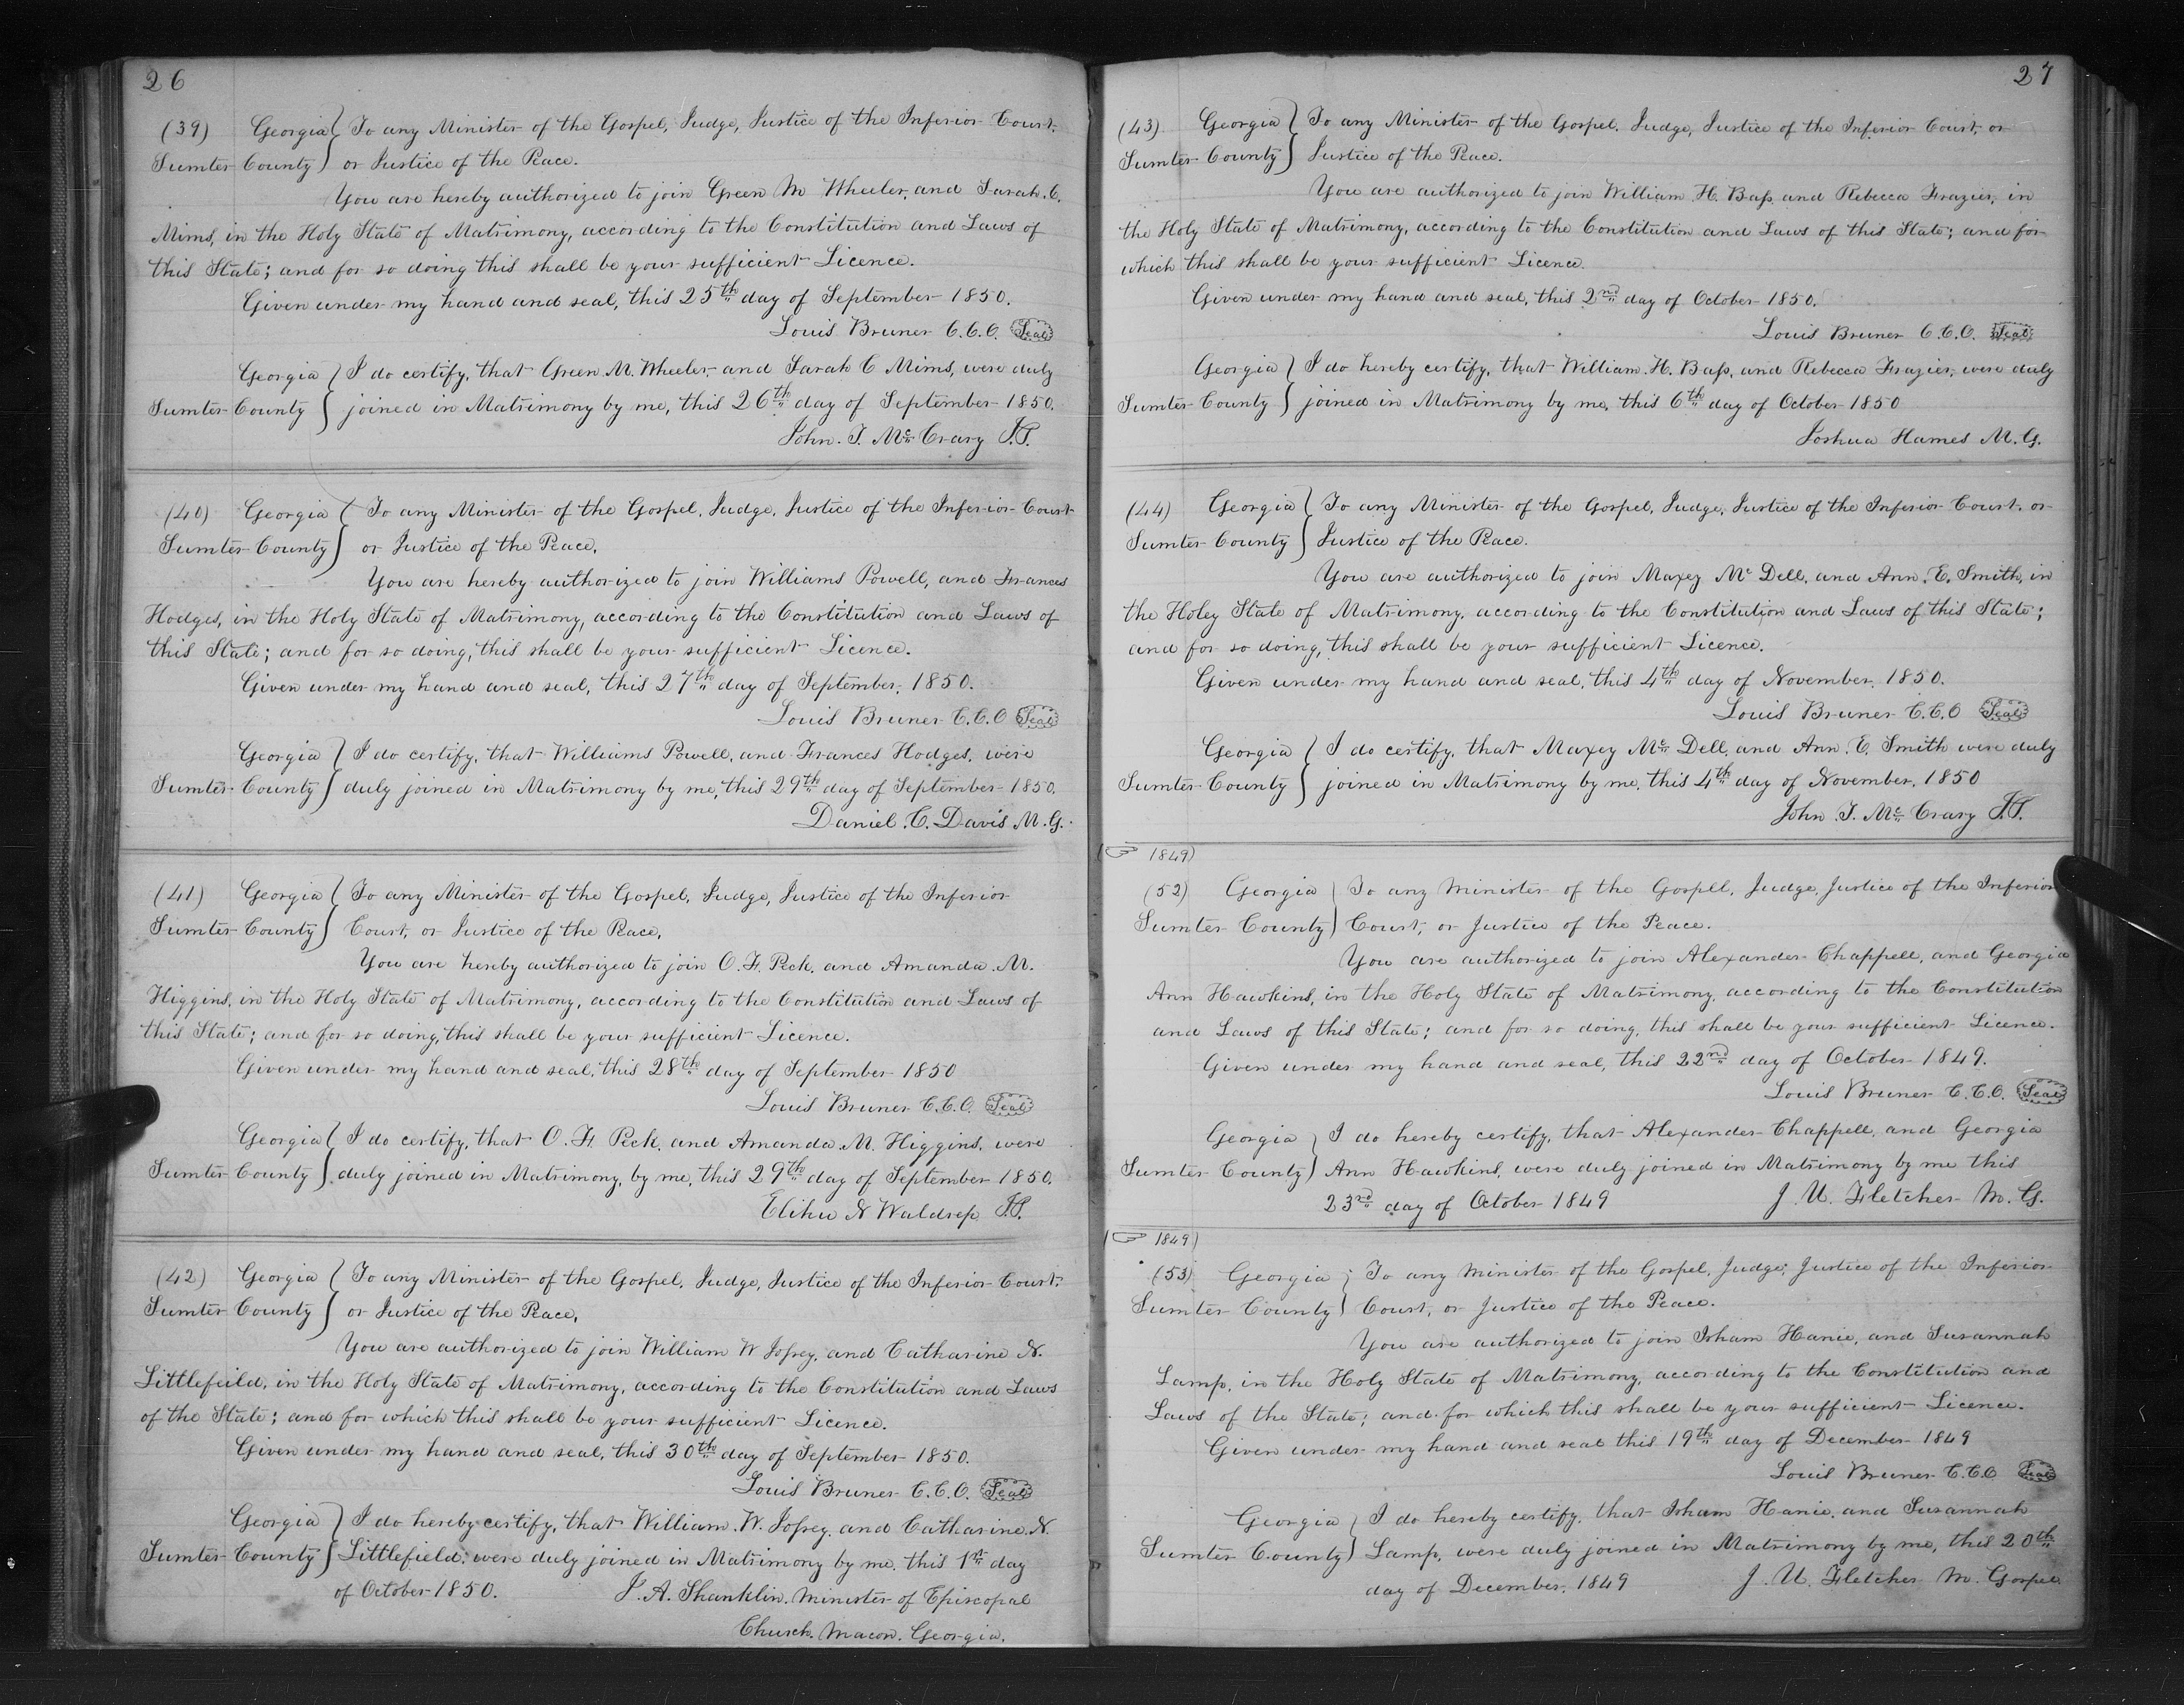 26
(39) Georgia To any Minister of the Gospel, Judge, Justice of the Inferior Court,
Sumter County or Justice of the Peace.
You are hereby authorized to join Green M Wheeler, and Sarah. C.
Mims, in the Holy State of Matrimony, according to the Constitution and Laws of
this State; and for so doing this shall be your sufficient Licence.
Given under my hand and seal, this 25th day of September 1850.
Louis Bruner C.C.O. Seal
Georgia I do certify, that Green M. Wheeler, and Sarah C Mims, were duly
Sumter County joined in Matrimony by me, this 26th day of September 1850.
John. T. Mc Crary J.P.
(40) Georgia To any Minister of the Gospel, Judge, Justice of the Inferior Court
Sumter County or Justice of the Peace,
You are hereby authorized to join Williams Powell, and Frances
Hodges, in the Holy State of Matrimony, according to the Constitution and Laws of
this State; and for so doing, this shall be your sufficient Licence.
Given under my hand and seal, this 27th day of September, 1850.
Louis Bruner C.C.O Seal
Georgia I do certify, that Williams Powell, and Frances Hodges, were
Sumter County duly joined in Matrimony by me, this 29th day of September 1850.
Daniel. C. Davis M.G.
(41) Georgia To any Minister of the Gospel, Judge, Justice of the Inferior
Sumter County Court, or Justice of the Peace,
You are hereby authorized to join O. F. Peck, and Amanda. M.
Higgins, in the Holy State of Matrimony, according to the Constitution and Laws of
this State; and for so doing, this shall be your sufficient Licence.
Given under my hand and seal, this 28th day of September 1850
Louis Bruner C.C.O. Seal
Georgia I do certify, that O. F. Peck, and Amanda. M. Higgins, were
Sumter County duly joined in Matrimony, by me, this 29th day of September 1850.
Elihu N Waldrep J.P.
(42) Georgia To any Minister of the Gospel, Judge, Justice of the Inferior Court,
Sumter County or Justice of the Peace,
You are authorized to join William W Jossey, and Catharine N.
Littlefeild, in the Holy State of Matrimony, according to the Constitution and Laws
of the State; and for which this shall be your sufficient Licence.
Given under my hand and seal, this 30th day of September 1850.
Louis Bruner C.C.O. Seal
Georgia I do hereby certify, that William. W. Jossey, and Catharine. N.
Sumter County Littlefield, were duly joined in Matrimony by me, this 1st day
of October 1850. J. A. Shanklin. Minister of Episcopal
Church. Macon. Georgia.
27
(43) Georgia To any Minister of the Gospel, Judge, Justice of the Inferior Court, or
Sumter County Justice of the Peace.
You are authorized to join William. H. Bass, and Rebecca Frazier, in
the Holy State of Matrimony, according to the Constitution and Laws of this State; and for
which this shall be your sufficient Licence.
Given under my hand and seal, this 2nd day of October 1850.
Louis Bruner C.C.O. Seal
Georgia I do hereby certify, that William. H. Bass, and Rebecca Frazier, were duly
Sumter County joined in Matrimony by me, this 6th day of October 1850
Joshua Hames M.G.
(44) Georgia To any Minister of the Gospel, Judge, Justice of the Inferior Court, or
Sumter County Justice of the Peace.
You are authorized to join Maxey Mc Dell, and Ann. E. Smith, in
the Holey State of Matrimony, according to the Constitution and Laws of this State;
and for so doing, this shall be your sufficient Licence.
Given under my hand and seal, this 4th day of November, 1850.
Louis Bruner C.C.O Seal
Georgia I do certify, that Maxey Mc Dell, and Ann. E. Smith were duly
Sumter County joined in Matrimony by me, this 4th day of November, 1850
John. T. Mc Crary J.P.
(☞ 1849)
(52) Georgia To any Minister of the Gospell, Judge, Justice of the Inferior
Sumter County Court, or Justice of the Peace.
You are authorized to join Alexander Chappell, and Georgia
Ann Hawkins, in the Holy State of Matrimony, according to the Constitution
and Laws of this State; and for so doing, this shall be your sufficient Licence.
Given under my hand and seal, this 22nd day of October 1849.
Louis Bruner C.C.O. Seal
Georgia I do hereby certify, that Alexander Chappell, and Georgia
Sumter County Ann Hawkins, were duly joined in Matrimony by me this
23rd day of October 1849 J. U. Fletcher M. G.
(☞ 1849)
(53) Georgia To any Minister of the Gospel, Judge, Justice of the Inferior
Sumter County Court, or Justice of the Peace.
You are authorized to join Isham Hanie, and Susannah
Lamp, in the Holy State of Matrimony, according to the Constitution and
Laws of the State; and for which this shall be your sufficient Licence.
Given under my hand and seal this 19th day of December 1849
Louis Bruner C.C.O Seal
Georgia I do hereby certify, that Isham Hanie, and Susannah
Sumter County Lamp, were duly joined in Matrimony by me, this 20th
day of December, 1849 J. U. Fletcher M. Gospel